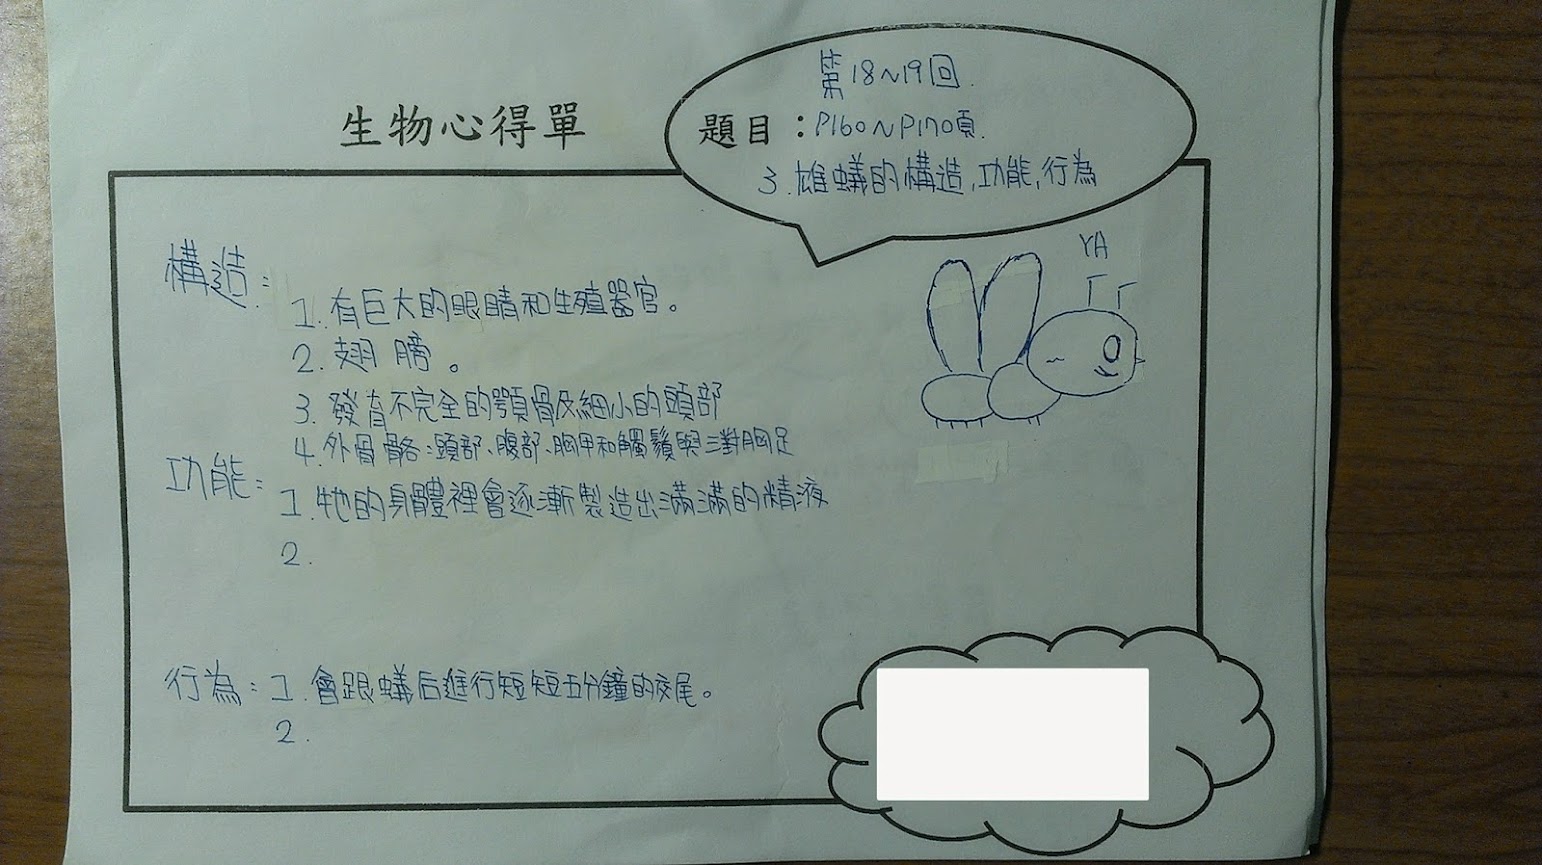 生物心得單
第18~19回.
題目：P160~P170頁.
3.雄蟻的構造,功能,行為
YA
構造：
1.有巨大的眼睛和生殖器官。
2.翅膀。
3.發育不完全的顎骨及細小的頭部
4.外骨骼:頭部、腹部、胸甲和觸鬚與三對胸足
功能：
1.牠的身體裡會逐漸製造出滿滿的精液
2.
行為：1.會跟蟻后進行短短五分鐘的交尾。
2.